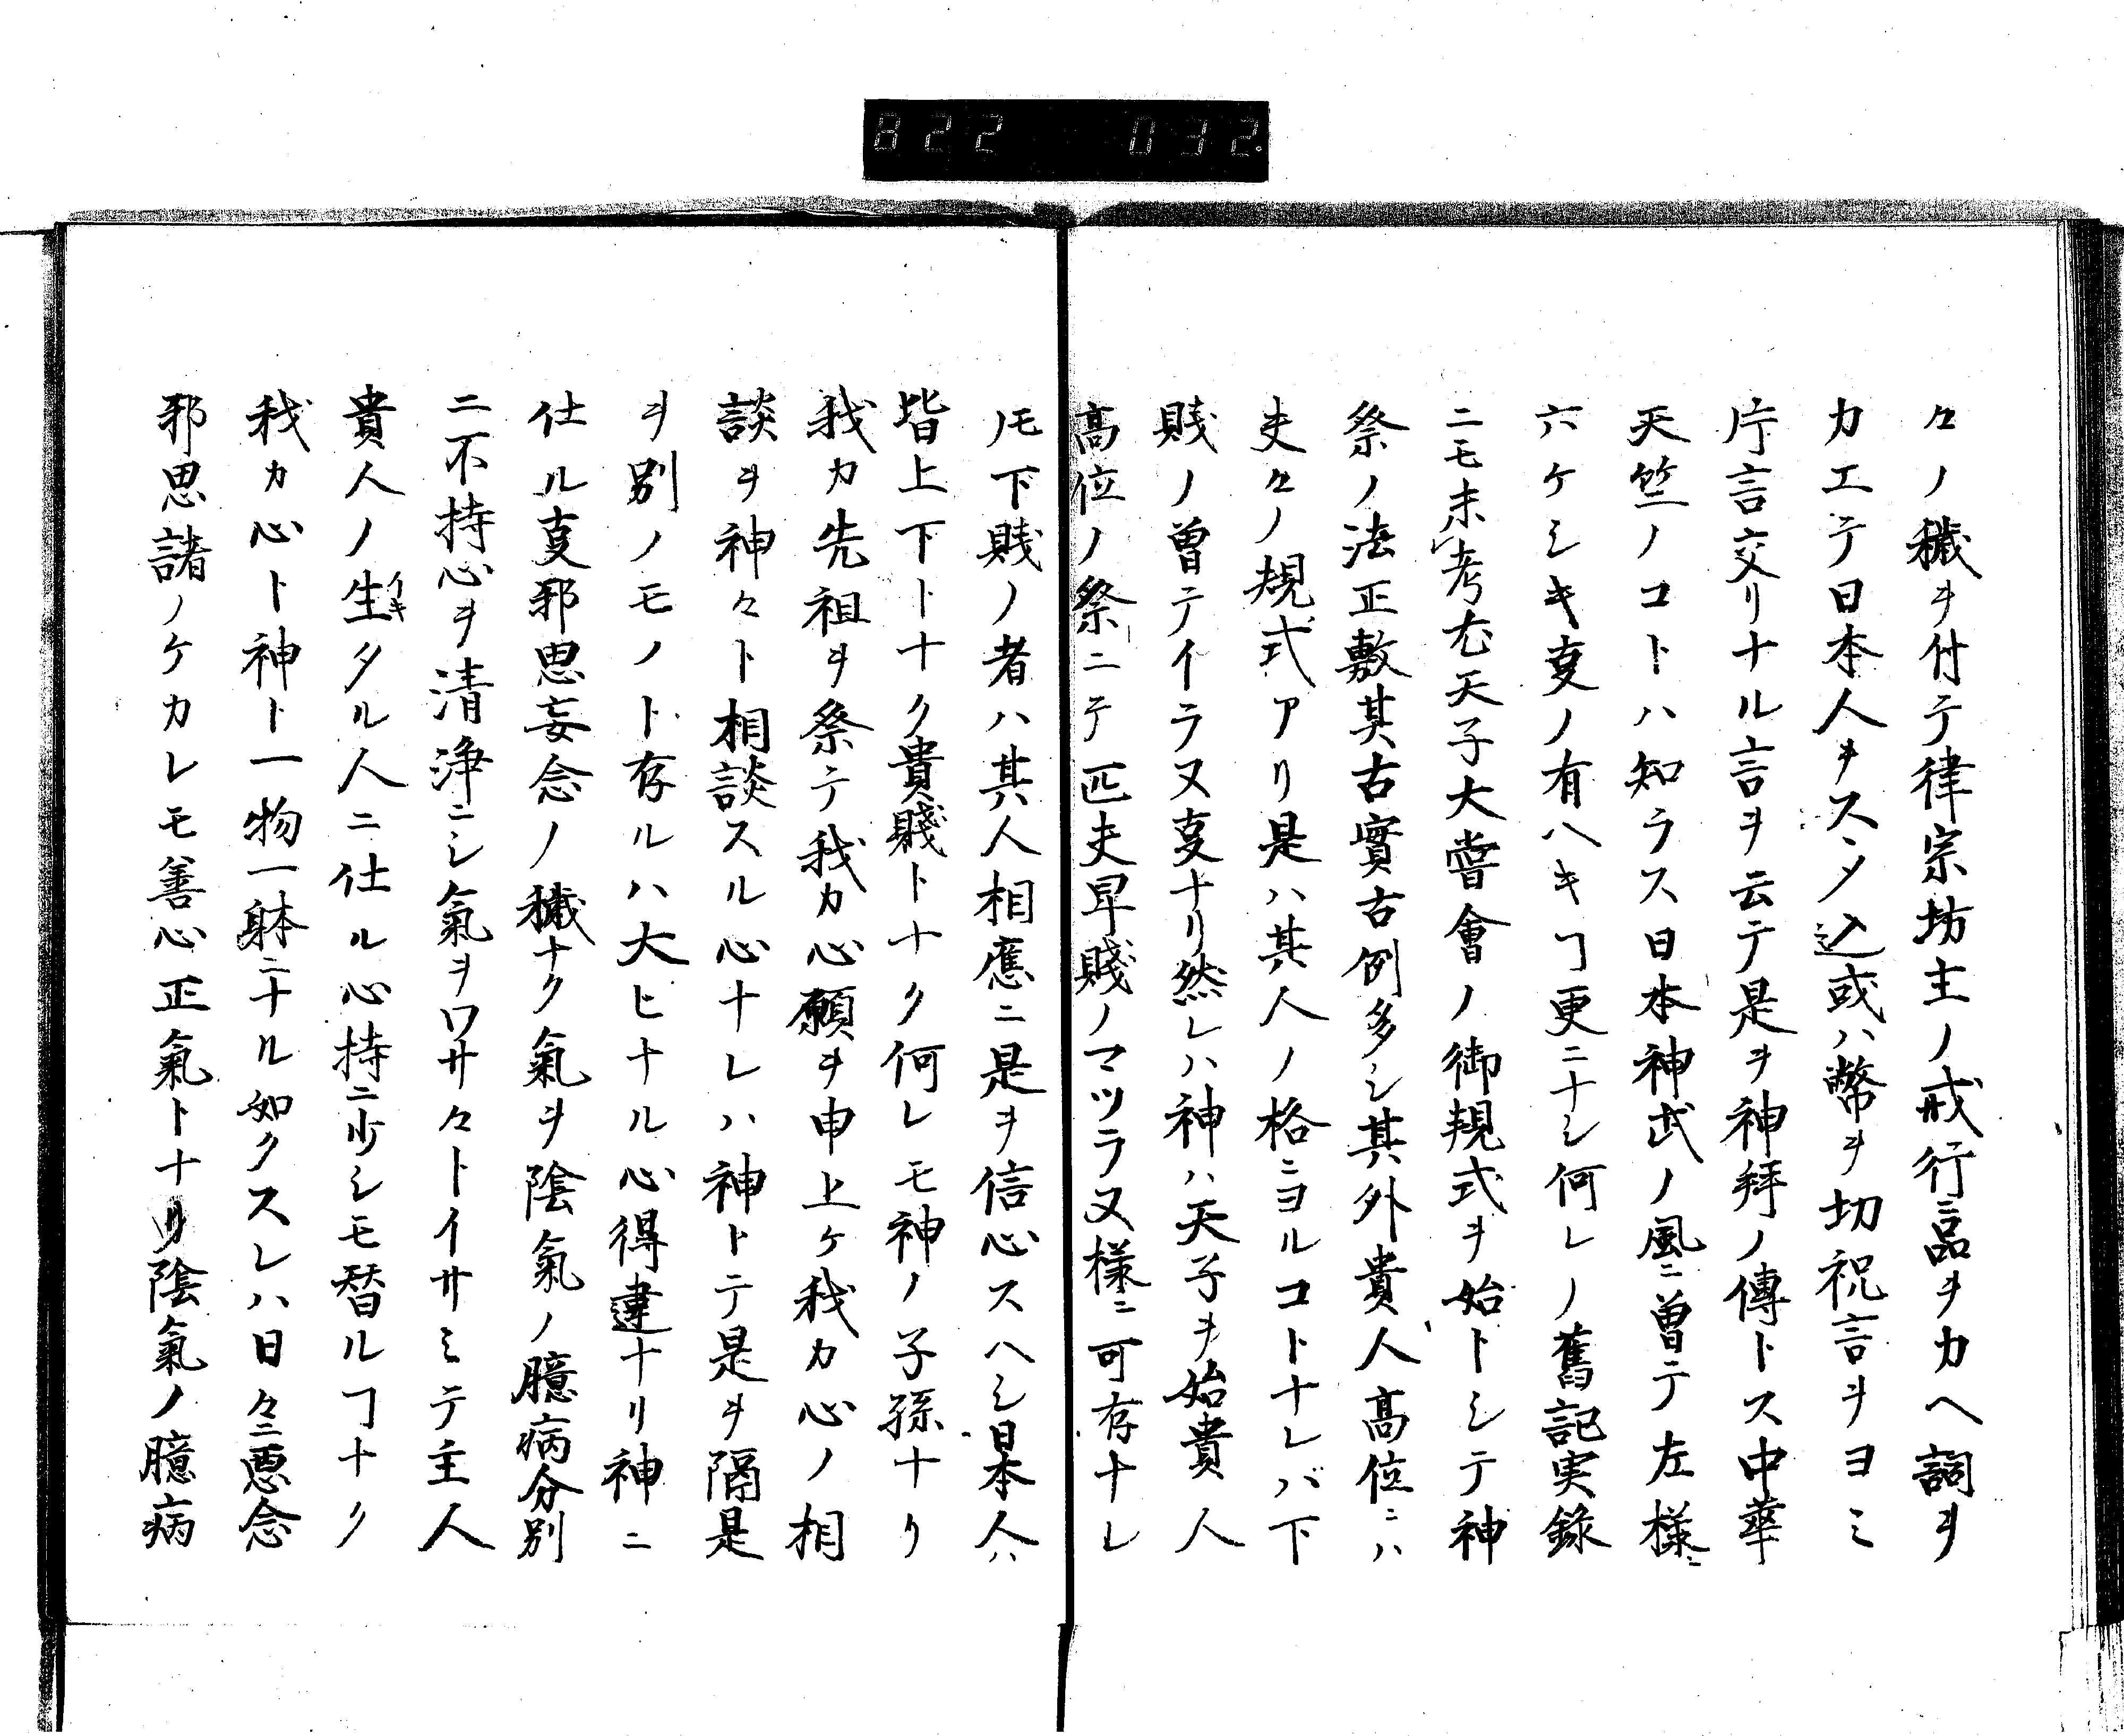 822 032.
々ノ穢ヲ付テ律宗坊主ノ戒行品ヲカヘ詞ヲ
カエテ日本人ヲスヽメ込或ハ幣ヲ切祝言ヲヨミ
片言交リナル言ヲ云テ是ヲ神拜ノ傳トス中華
天竺ノコトハ知ラス日本神武ノ風ニ曽テ左様ニ
六ケシキ㕝ノ有ヘキヿ更ニナシ何レノ舊記実録
ニモ未レ考尤天子大嘗會ノ御規式ヲ始トシテ神
祭ノ法正敷其古實古例多シ其外貴人髙位ニハ
夫々ノ規式アリ是ハ其人ノ格ニヨルコトナレバ下
賎ノ曽テイラヌ㕝ナリ然レハ神ハ天子ヲ始貴人
髙位ノ祭ニテ匹夫卑賤ノマツラヌ様ニ可存ナレ
𪜈下賎ノ者ハ其人相應ニ是ヲ信心スヘシ日本人ハ
皆上下トナク貴賤トナク何レモ神ノ子孫ナリ
我カ先祖ヲ祭テ我カ心願ヲ申上ケ我カ心ノ相
談ヲ神々ト相談スル心ナレハ神トテ是ヲ隔是
ヲ別ノモノト存ルハ大ヒナル心得違ナリ神ニ
仕ル㕝邪思妄念ノ穢ナク氣ヲ陰氣ノ臆病分別
ニ不持心ヲ清浄ニシ氣ヲワサ々トイサミテ主人
貴人ノ生イキタル人ニ仕ル心持ニ少シモ替ルヿナク
我カ心ト神ト一物一躰ニナル如クスレハ日々ニ悪念
邪思諸ノケカレモ善心正氣トナリ陰氣ノ臆病